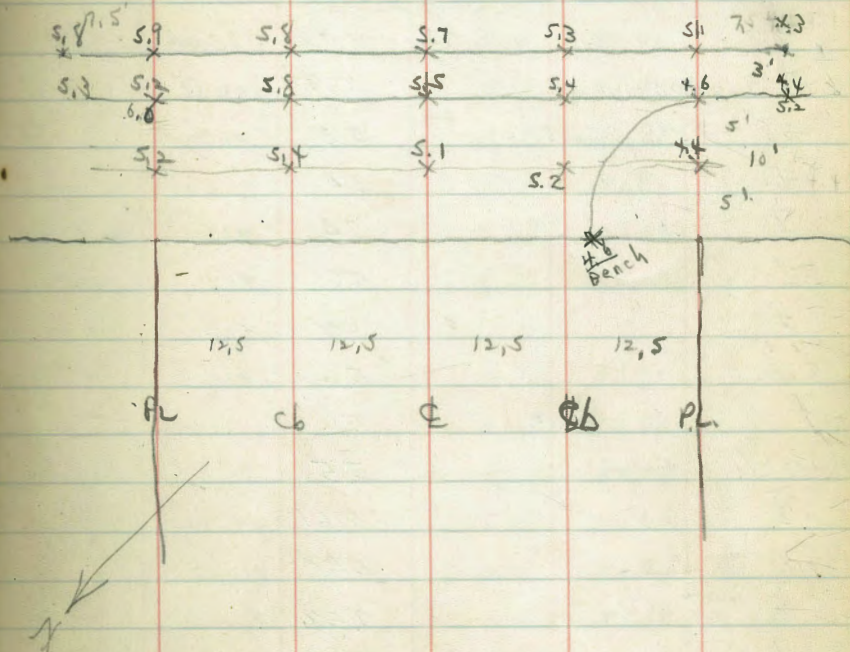 5.8 7.5' 5.9 5.8 5.7 5.3 5.1 7.5 4.3
3'
5.3 5.2 5.8 5.5 5.4 4.6 4.4
6.0 5.2
5'
5.2 5.4 5.1 5.2 4.4 10'
5'
Bench
12,5 12,5 12,5 12,5
PL Cb ℄ Cb P.L.